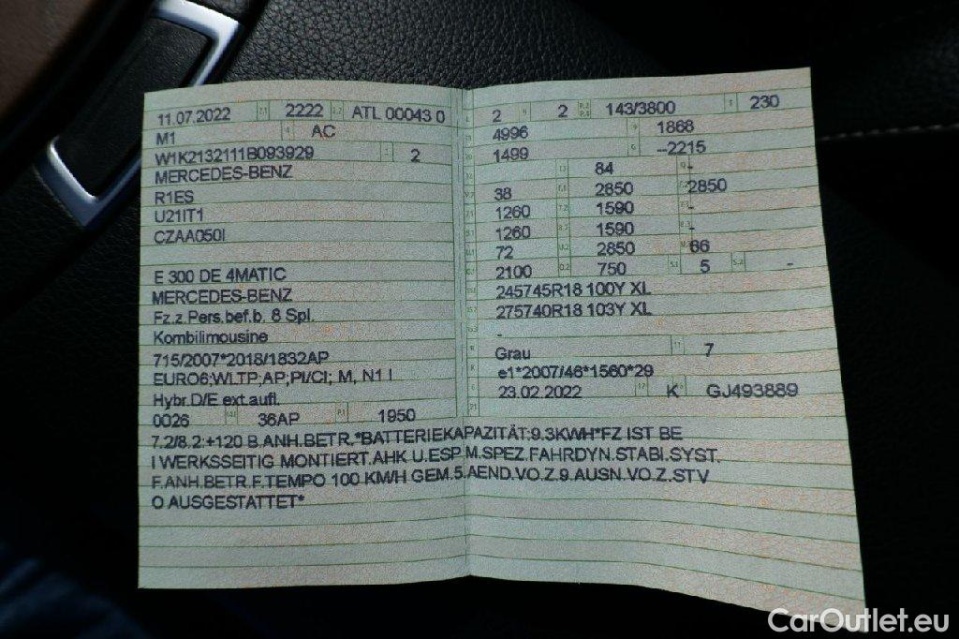 11.07.2022 2222 ATL 00043 0
M1 AC
W1K2132111B093929 2
MERCEDES-BENZ
R1ES
U21IT1
CZAA050I
E 300 DE 4MATIC
MERCEDES-BENZ
Fz.z.Pers.bef.b. 8 Spl.
Kombilimousine
715/2007*2018/1832AP
EURO6;WLTP;AP;PI/CI; M, N1 I
Hybr.D/E ext.aufl.
0026 36AP 1950
2 2 143/3800 230
4996 1868
1499 --2215
84 -
38 2850 2850
1260 1590 -
1260 1590 -
72 2850 66
2100 750 5 -
245745R18 100Y XL
275740R18 103Y XL
-
Grau 7
e1*2007/46*1560*29
23.02.2022 K GJ493889
7.2/8.2:+120 B.ANH.BETR.*BATTERIEKAPAZITÄT:9.3KWH*FZ IST BE
I WERKSSEITIG MONTIERT.AHK U.ESP M.SPEZ.FAHRDYN.STABI.SYST.
F.ANH.BETR.F.TEMPO 100 KM/H GEM.5.AEND.VO.Z.9.AUSN.VO.Z.STV
O AUSGESTATTET*
CarOutlet.eu